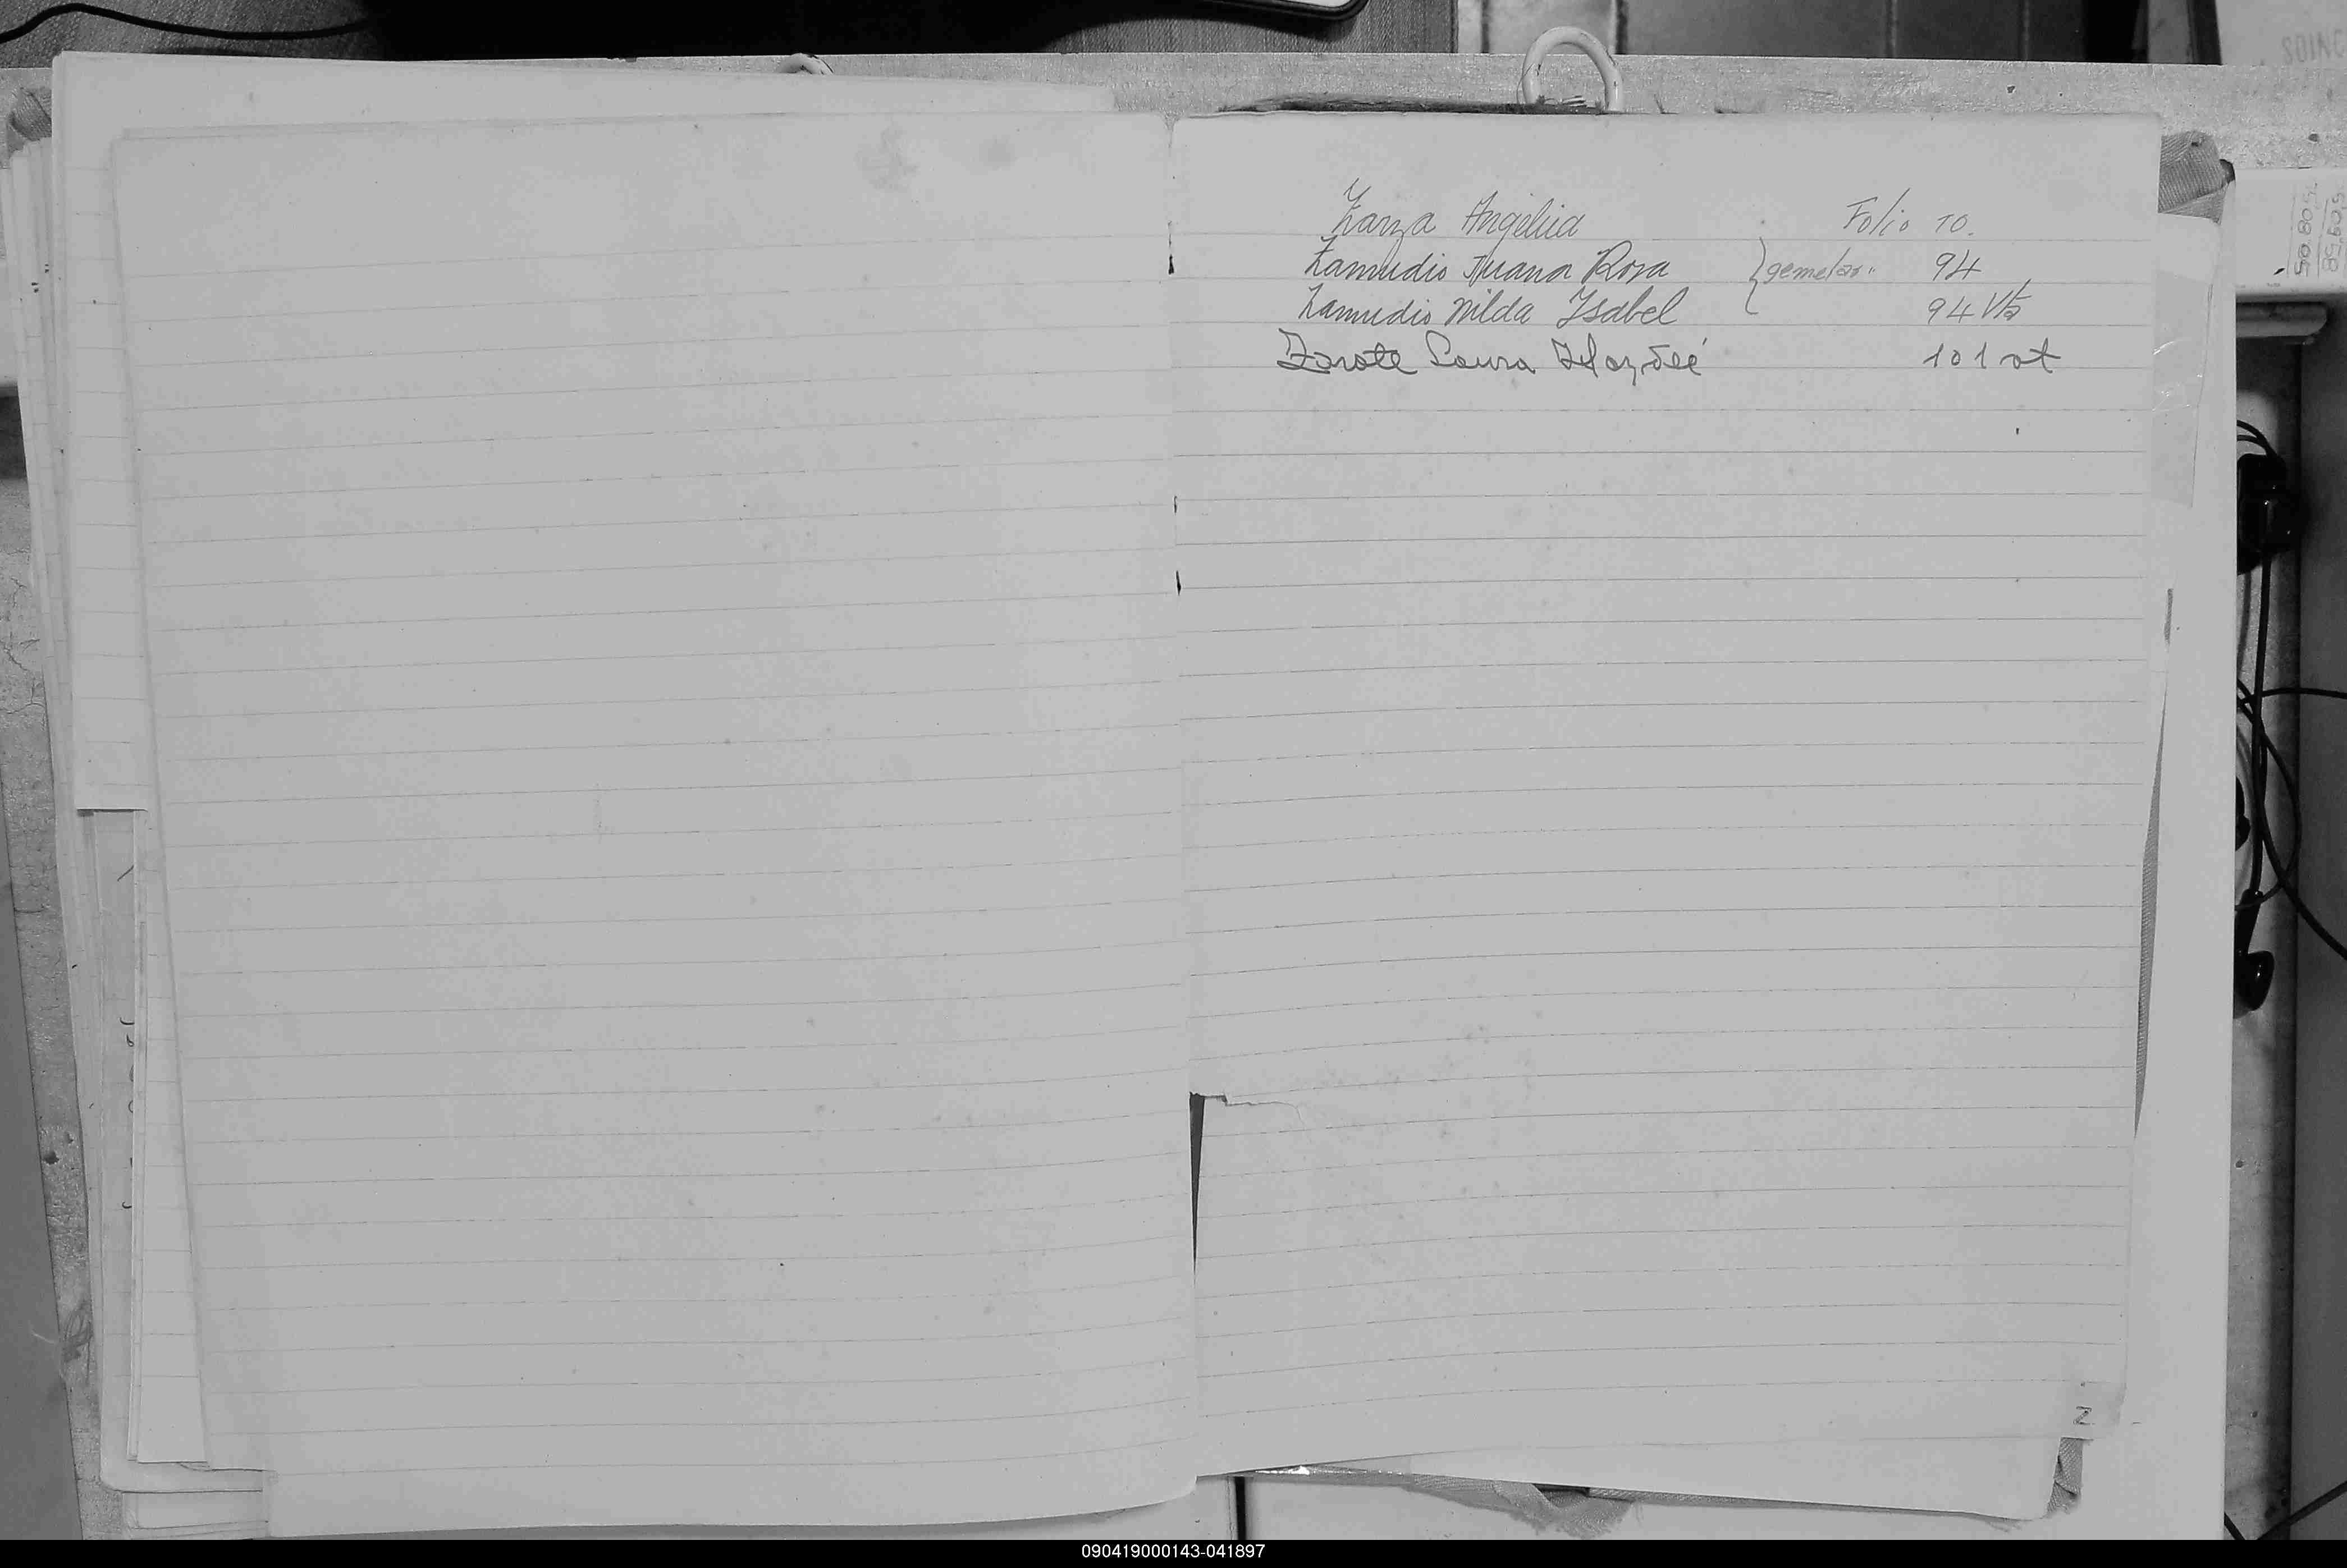 Zarza Angélica Folio 10.
Zamudio Juana Rosa } gemelas " 94
Zamudio Nilda Ysabel 94 Vta
Zarate Laura Haydeé 101 vt
Z
090419000143-041897